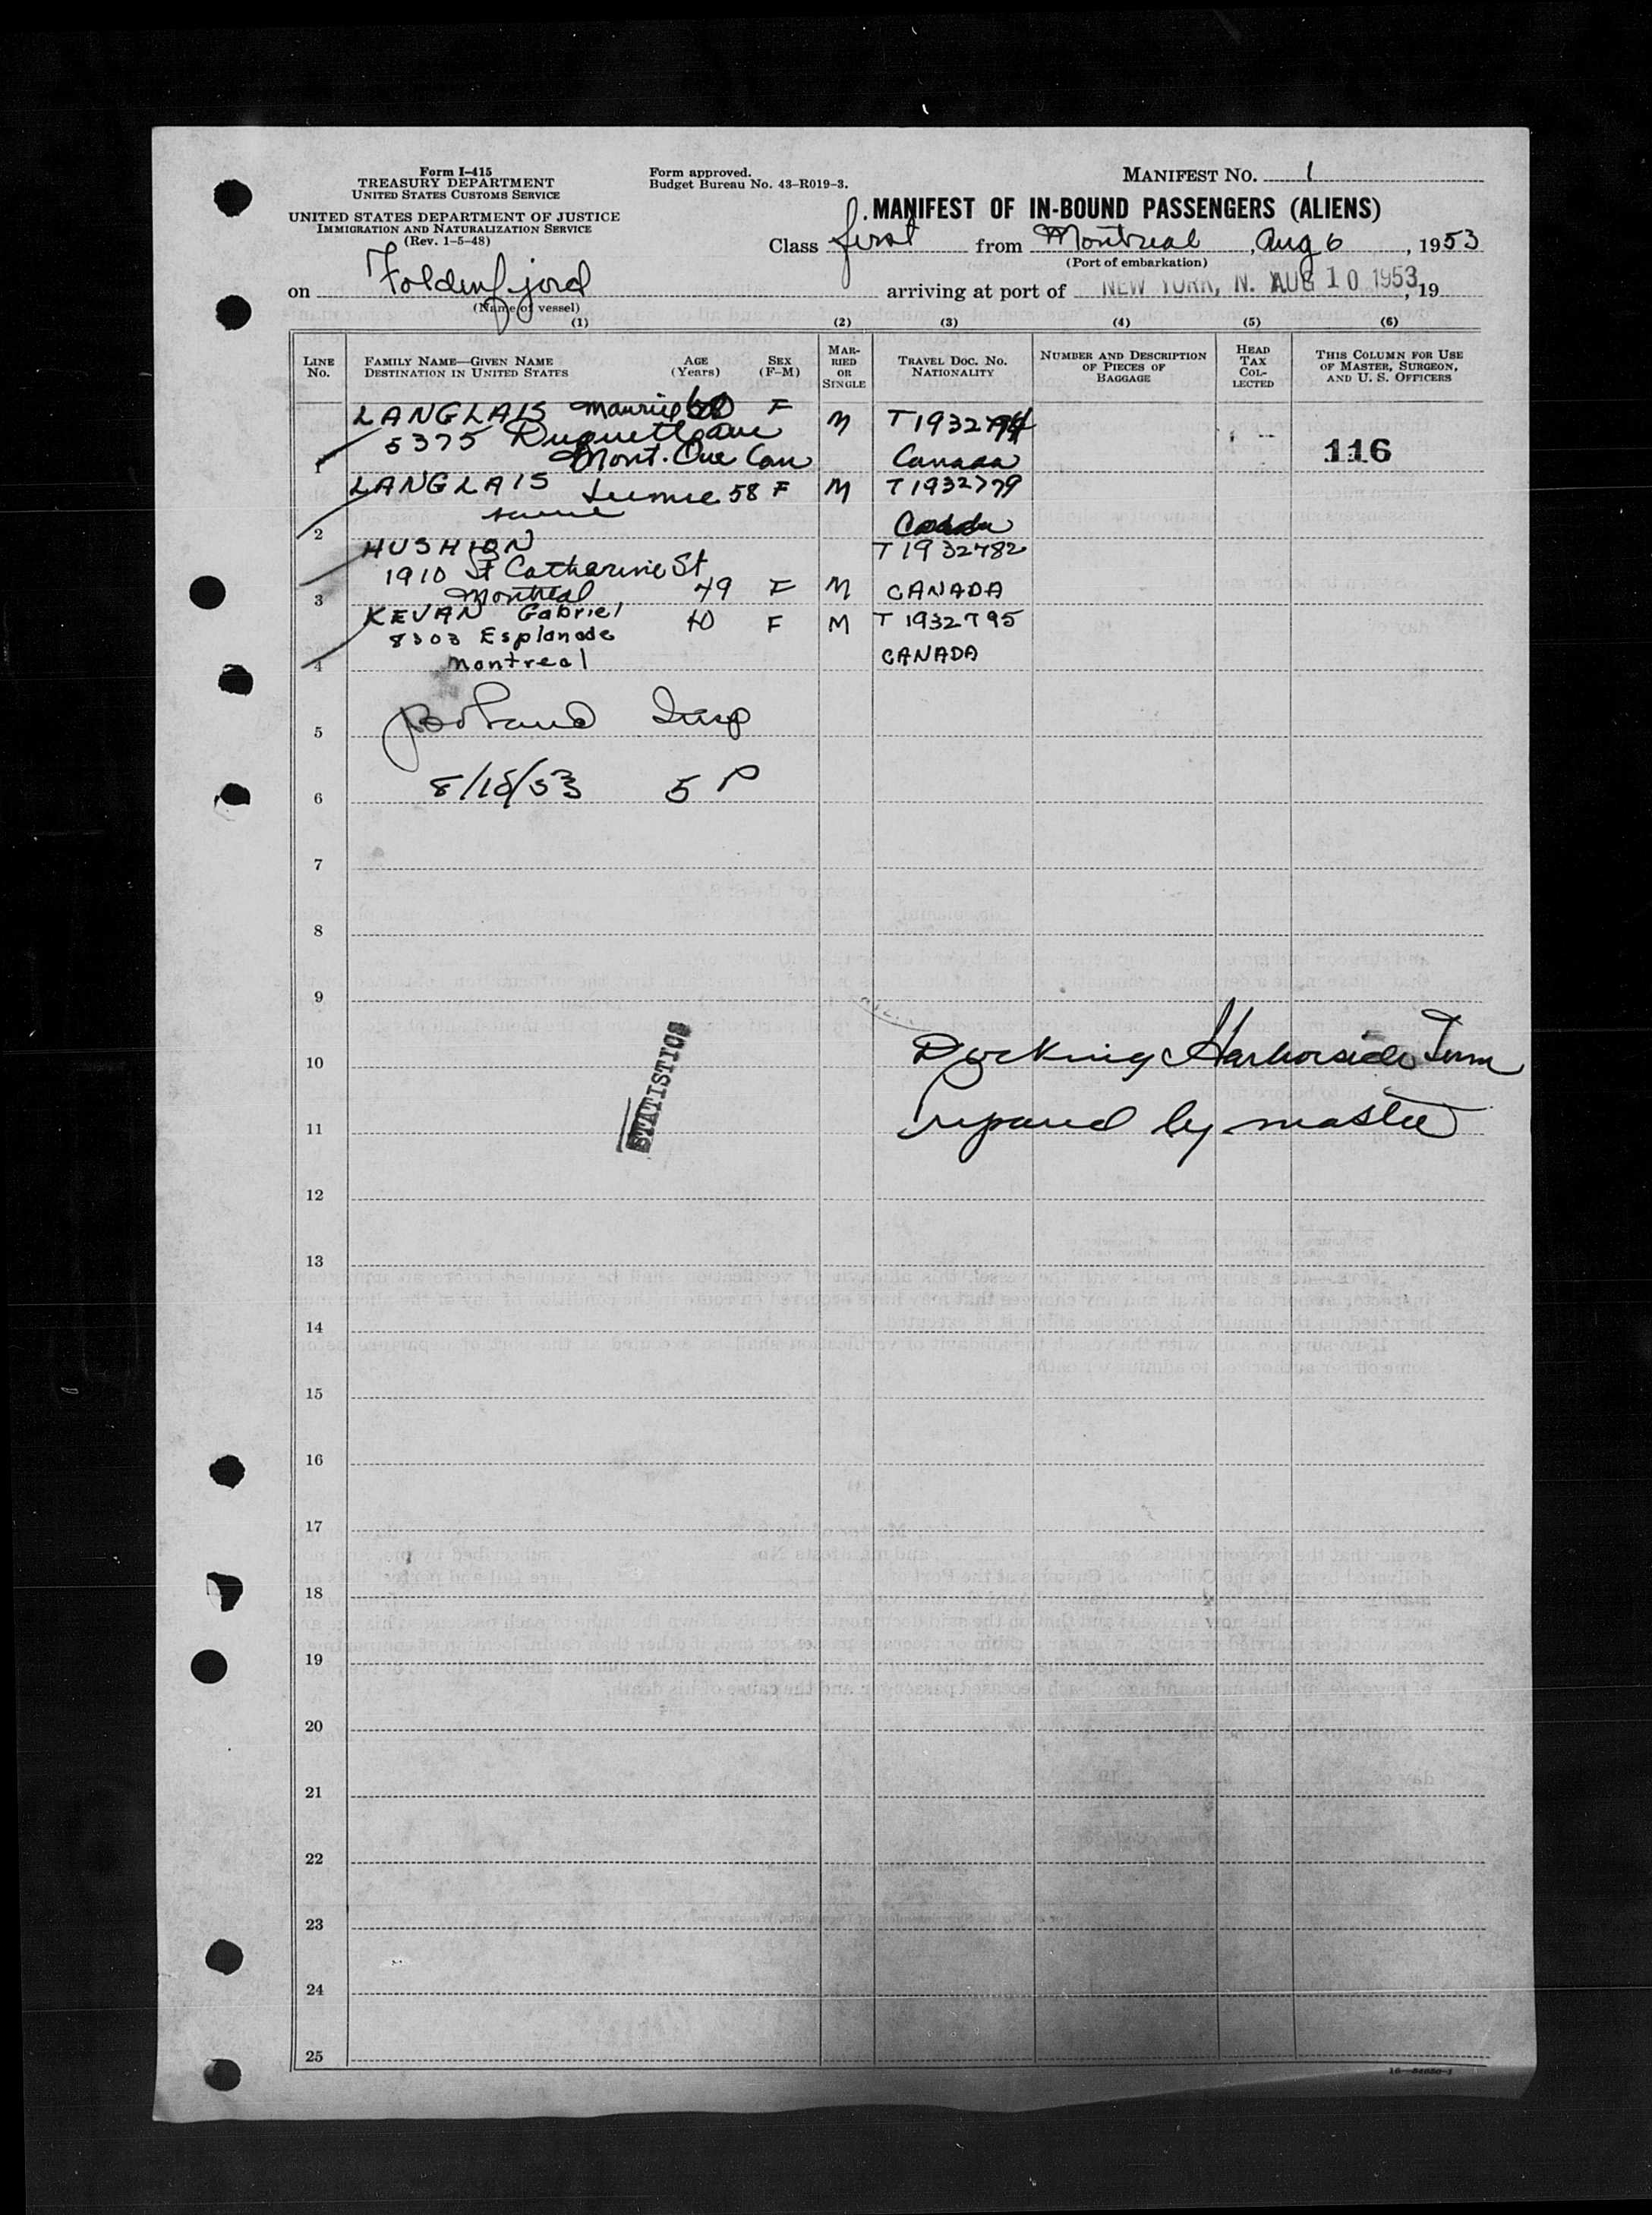 Form I-415
TREASURY DEPARTMENT
UNITED STATES CUSTOMS SERVICE
UNITED STATES DEPARTMENT OF JUSTICE
IMMIGRATION AND NATURALIZATION SERVICE
(Rev. 1-5-48)
Form approved.
Budget Bureau No. 43-R019-3.
MANIFEST NO. 1
MANIFEST OF IN-BOUND PASSENGERS (ALIENS)
Class first from Montreal, Aug 6, 1953
(Port of embarkation)
on Foldenfjord arriving at port of NEW YORK, N. AUG 10 1953, 19
(Name of vessel)
(1) (2) (3) (4) (5) (6)
LINE NO.
FAMILY NAME—GIVEN NAME
DESTINATION IN UNITED STATES
AGE (Years)
SEX (F-M)
MARRIED OR SINGLE
TRAVEL DOC. NO.
NATIONALITY
NUMBER AND DESCRIPTION OF PIECES OF BAGGAGE
HEAD TAX COLLECTED
THIS COLUMN FOR USE OF MASTER, SURGEON, AND U. S. OFFICERS
LANGLAIS F M
5375 Duquette Ave
1 Mont. Que Can Canada 116
LANGLAIS 58 F M T1932779
2 same
HUSHION T1932782
1910 St Catharine St
3 Montreal 49 F M CANADA
KEVAN Gabriel 40 F M T 1932795
8303 Esplanade
4 Montreal CANADA
5 Insp
6 5 P
7
8
9
10 Docking Harborside Term
11 Prepared by master
STATISTICS
12
13
14
15
16
17
18
19
20
21
22
23
24
25